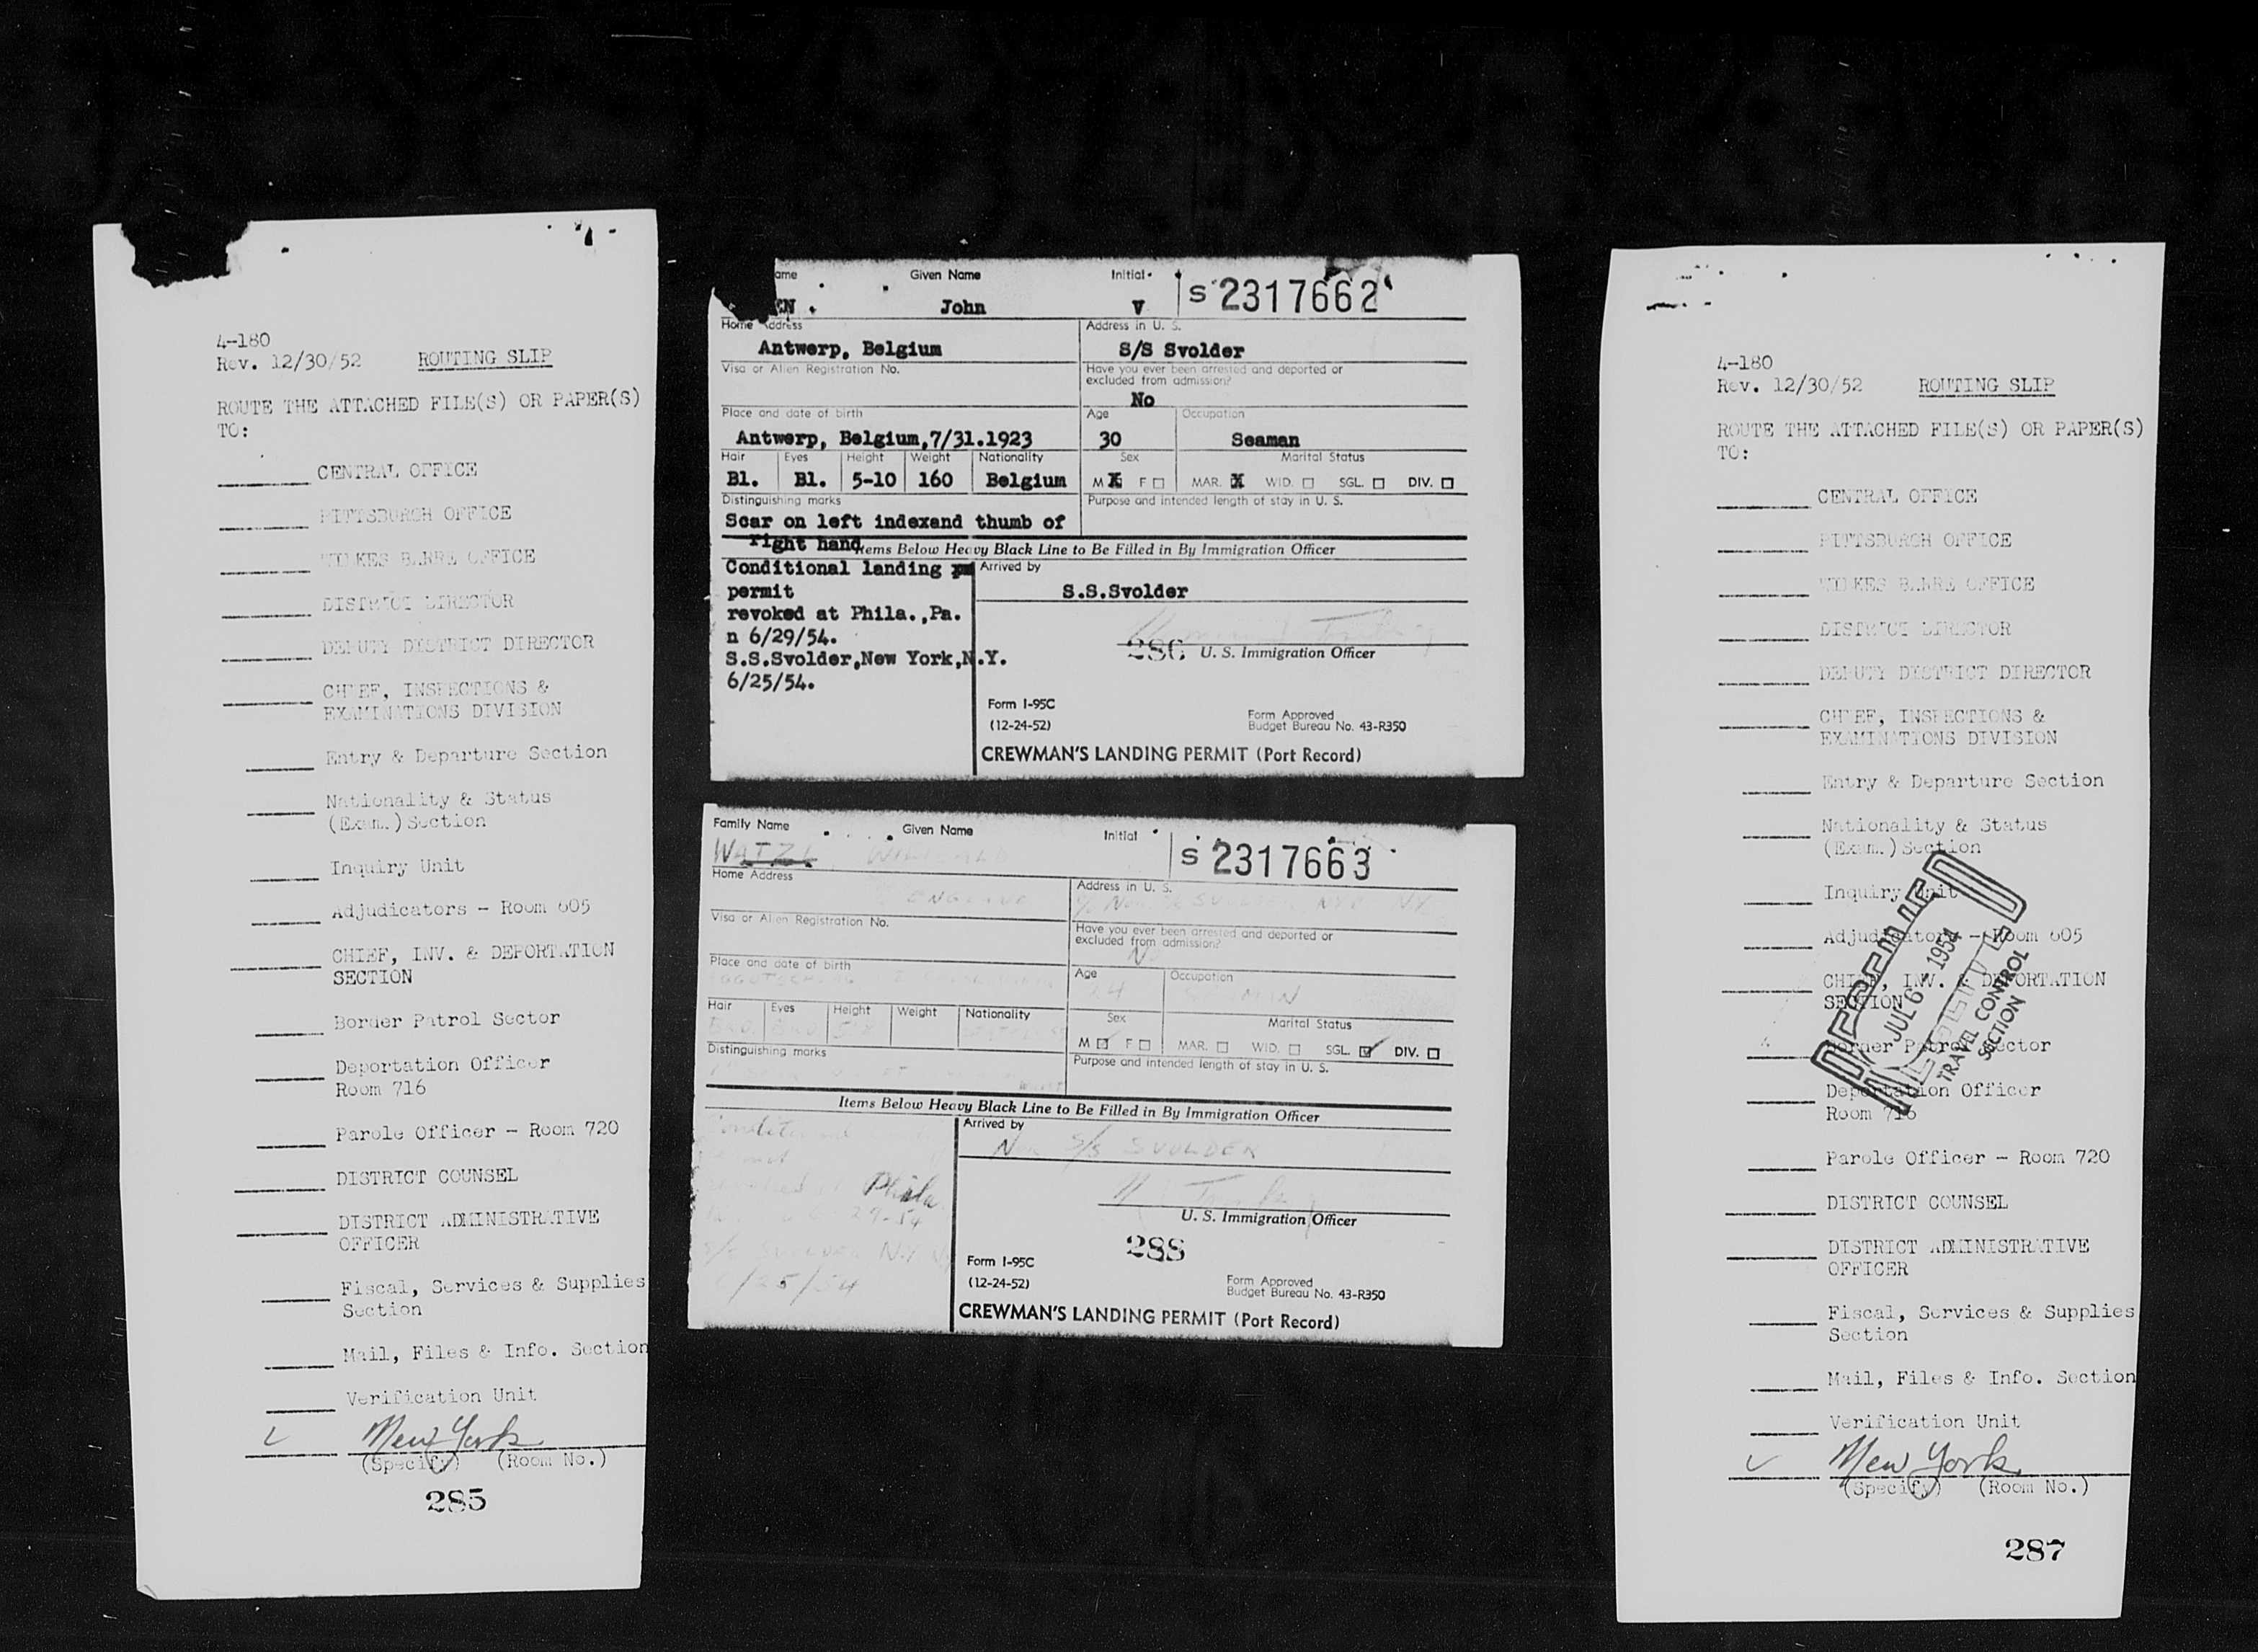 4-180
Rev. 12/30/52 ROUTING SLIP
ROUTE THE ATTACHED FILE(S) OR PAPER(S)
TO:
CENTRAL OFFICE
PITTSBURGH OFFICE
WILKES BARRE OFFICE
DISTRICT DIRECTOR
DEPUTY DISTRICT DIRECTOR
CHIEF, INSPECTIONS &
EXAMINATIONS DIVISION
Entry & Departure Section
Nationality & Status
(Exam.) Section
Inquiry Unit
Adjudicators - Room 605
CHIEF, INV. & DEPORTATION
SECTION
Border Patrol Sector
Deportation Officer
Room 716
Parole Officer - Room 720
DISTRICT COUNSEL
DISTRICT ADMINISTRATIVE
OFFICER
Fiscal, Services & Supplies
Section
Mail, Files & Info. Section
Verification Unit
New York
(Specify) (Room No.)
285
ame Given Name Initial
EN John V S 2317662
Home Address Address in U. S.
Antwerp, Belgium S/S Svolder
Visa or Alien Registration No. Have you ever been arrested and deported or
excluded from admission?
No
Place and date of birth Age Occupation
Antwerp, Belgium,7/31.1923 30 Seaman
Hair Eyes Height Weight Nationality Sex Marital Status
Bl. Bl. 5-10 160 Belgium M X F MAR. X WID. SGL. DIV.
Distinguishing marks Purpose and intended length of stay in U. S.
Scar on left indexand thumb of
right hand
Items Below Heavy Black Line to Be Filled in By Immigration Officer
Conditional landing Arrived by
permit S.S.Svolder
revoked at Phila.,Pa.
n 6/29/54.
286 U. S. Immigration Officer
S.S.Svolder,New York,N.Y.
6/25/54.
Form I-95C
(12-24-52)
Form Approved
Budget Bureau No. 43-R350
CREWMAN'S LANDING PERMIT (Port Record)
Family Name Given Name Initial
WATZL S 2317663
Home Address Address in U. S.
Visa or Alien Registration No. Have you ever been arrested and deported or
excluded from admission?
No
Place and date of birth Age Occupation
24
Hair Eyes Height Weight Nationality Sex Marital Status
M F MAR. WID. SGL. DIV.
Distinguishing marks Purpose and intended length of stay in U. S.
Items Below Heavy Black Line to Be Filled in By Immigration Officer
Arrived by
S/S SVOLDER
Phila
29-54
U. S. Immigration Officer
288
N.Y.
/25/54
Form I-95C
(12-24-52)
Form Approved
Budget Bureau No. 43-R350
CREWMAN'S LANDING PERMIT (Port Record)
4-180
Rev. 12/30/52 ROUTING SLIP
ROUTE THE ATTACHED FILE(S) OR PAPER(S)
TO:
CENTRAL OFFICE
PITTSBURGH OFFICE
WILKES BARRE OFFICE
DISTRICT DIRECTOR
DEPUTY DISTRICT DIRECTOR
CHIEF, INSPECTIONS &
EXAMINATIONS DIVISION
Entry & Departure Section
Nationality & Status
(Exam.) Section
Inquiry Unit
Adjudicators - Room 605
CHIEF, INV. & DEPORTATION
SECTION
Border Patrol Sector
Deportation Officer
Room 716
JUL 6 - 1954
TRAVEL CONTROL
SECTION
Parole Officer - Room 720
DISTRICT COUNSEL
DISTRICT ADMINISTRATIVE
OFFICER
Fiscal, Services & Supplies
Section
Mail, Files & Info. Section
Verification Unit
New York
(Specify) (Room No.)
287